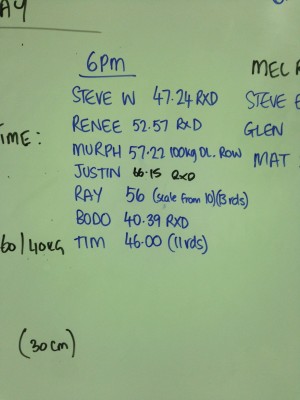 AY
6PM
MEL
STEVE W 47.24 RXD
STEVE
RENEE 52.57 RXD
GLEN
IME:
MURPH 57.22 100KG DL. ROW
MAT
JUSTIN 66.15 RXD
RAY 56 (scale from 10)(13 rds)
BODO 40.39 RXD
60/40KG
TIM 46.00 (11 rds)
(30cm)